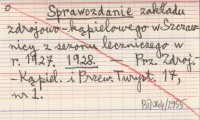 Sprawozdanie zakładu
zdrojowo-kąpielowego w Szczaw-
nicy z sezonu leczniczego w
r. 1927. 1928. Prz. Zdroj.-
-Kąpiel. i Przew. Turyst. 17,
nr 1.